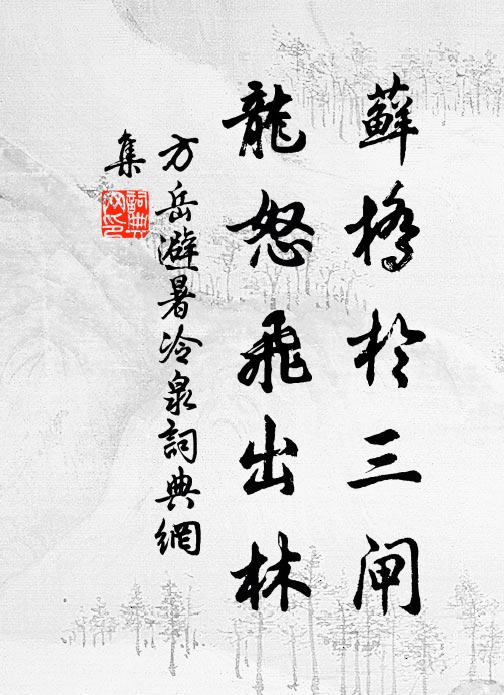 蘚橋於三閘
龍怒飛出林
方岳避暑冷泉詞典網
集
詞典网印